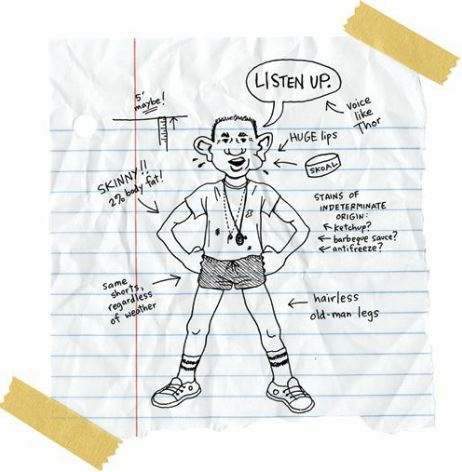 LISTEN UP.
voice
like
Thor
5'
maybe!
HUGE lips
SKOAL
SKINNY!!
2% body fat!
STAINS OF
INDETERMINATE
ORIGIN:
ketchup?
barbeque sauce?
antifreeze?
same
shorts,
regardless
of weather
hairless
old-man legs